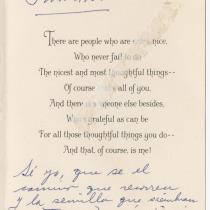 There are people who are extra nice,
Who never fail to do
The nicest and most thoughtful things--
Of course that's all of you.
And there is someone else besides,
Who's grateful as can be
For all those thoughtful things you do--
And that, of course, is me!
Sé yo, que se el
camino que recorren
y la semilla que siembran